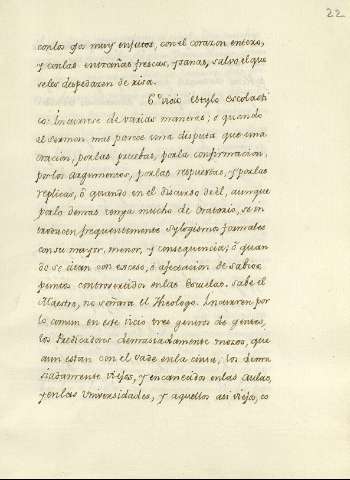 22
con los ojos muy enjutos, con el corazon entero,
y con las entrañas frescas, y sanas, salvo el que
se les despedazen de risa.
6º vicio estylo Escolasti
co: Incurrese de varias maneras; o quando
el Sermon mas parece una disputa que una
oracion, por las pruebas, por la confirmacion,
por los argumentos, por las respuestas, y por las
replicas, ô quando en el discurso del, aunque
por lo demas tenga mucho de Oratorio, se in
troducen frequentemente sylogismos formales
con su mayor, menor, y consequencia; ô quan
do se citan con exceso, ô afectacion de sabios
puntos controvertidos en las Escuelas. sabe el
Maestro, no señara el Theologo. Incurren por
lo comun en este vicio tres generos de gentes,
los Predicadores demasiadamente mozos, que
aun estan con el vade en la cinta; los dema
siadamente viejos, y encanecidos en las Aulas,
y en las Universidades, y aquellos asi viejos, co